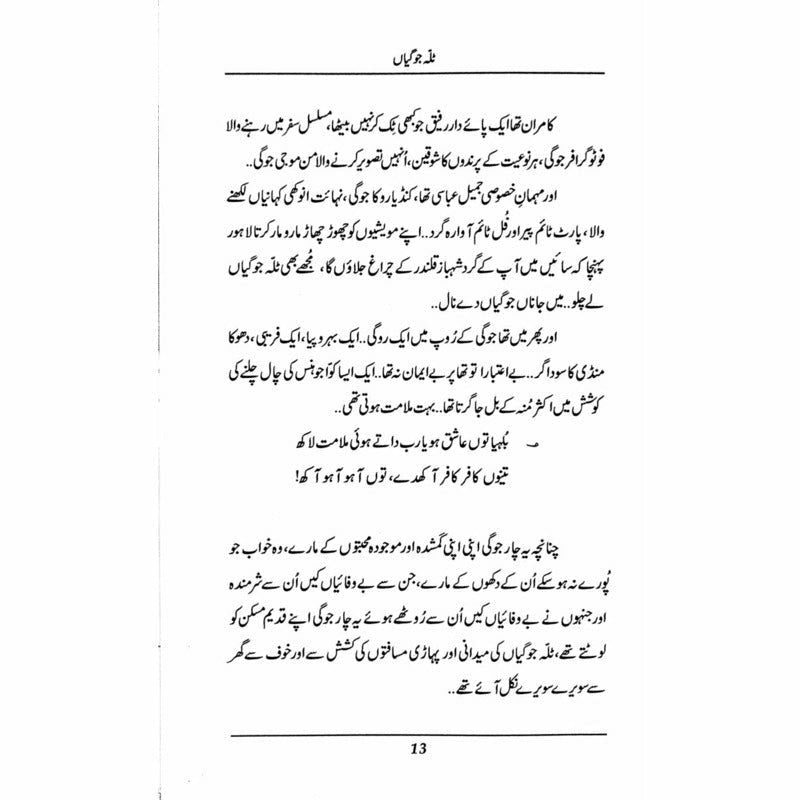 ٹلّہ جوگیاں
کامران تھا ایک پائے دار رفیق جو کبھی ٹِک کر نہیں بیٹھا، مسلسل سفر میں رہنے والا
فوٹوگرافر جوگی، ہر نوعیت کے پرندوں کا شوقین، اُنہیں تصویر کرنے والا من موجی جوگی..
اور مہمانِ خصوصی جمیل عباسی تھا، کنڈیارو کا جوگی، نہائت انوکھی کہانیاں لکھنے
والا، پارٹ ٹائم پیر اور فُل ٹائم آوارہ گرد.. اپنے مویشیوں کو چھوڑ چھاڑ مارو مار کرتا لاہور
پہنچا کہ سائیں میں آپ کے گرد شہباز قلندر کے چراغ جلاؤں گا، مُجھے بھی ٹلّہ جوگیاں
لے چلو.. میں جاناں جوگیاں دے نال..
اور پھر میں تھا جوگی کے رُوپ میں ایک روگی.. ایک بہروپیا، ایک فریبی، دھوکا
منڈی کا سوداگر.. بے اعتبارا تو تھا پر بے ایمان نہ تھا.. ایک ایسا کوّا جو ہنس کی چال چلنے کی
کوشش میں اکثر مُنہ کے بل جا گرتا تھا.. بہت ملامت ہوتی تھی..
؎ بُلھیا توں عاشق ہویا رب دا تے ہوئی ملامت لاکھ
تینوں کافر کافر آکھدے، توں آہو آہو آکھ!
چنانچہ یہ چار جوگی اپنی اپنی گمشدہ اور موجودہ محبتوں کے مارے، وہ خواب جو
پُورے نہ ہو سکے اُن کے دکھوں کے مارے، جن سے بے وفائیاں کیں اُن سے شرمندہ
اور جنہوں نے بے وفائیاں کیں اُن سے رُوٹھے ہوئے یہ چار جوگی اپنے قدیم مسکن کو
لوٹتے تھے، ٹلّہ جوگیاں کی میدانی اور پہاڑی مسافتوں کی کشش سے اور خوف سے گھر
سے سویرے سویرے نکل آئے تھے..
13